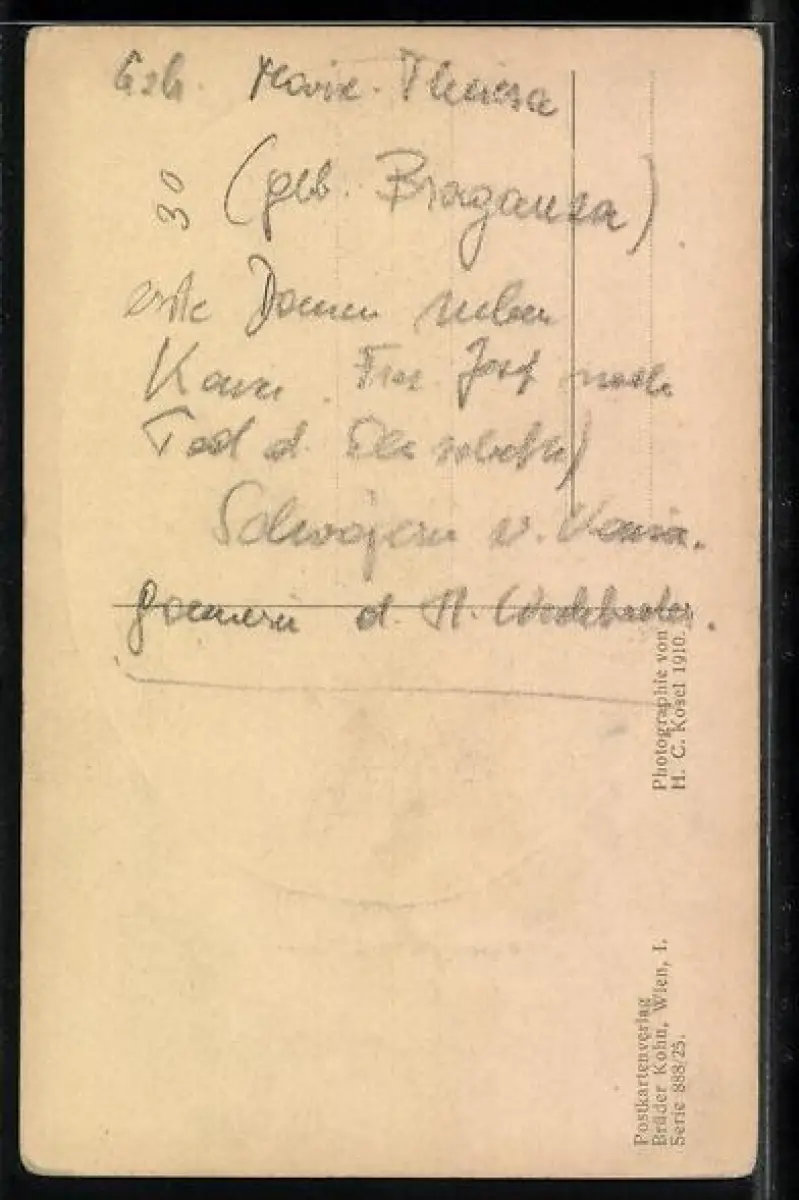 Erzh. Marie-Theresa
30
(geb. Braganza)
erste Damen neben
Kaiser Frz Josef nach
Tod d. Elisabeth
Schwägerin v. Kaiser.
d.
Photographie von
H. C. Kosel 1910.
Postkartenverlag
Brüder Kohn, Wien, I.
Serie 888/25.